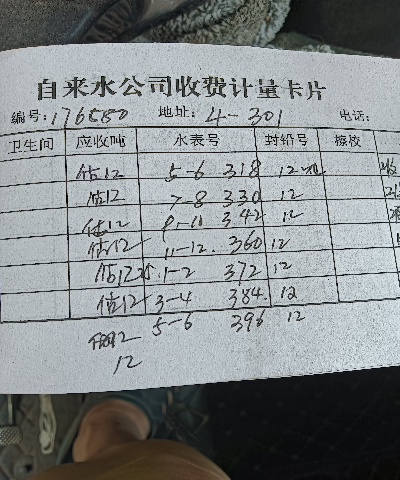 自来水公司收费计量卡片
编号:176580 地址: 4-301 电话:
卫生间 应收吨 水表号 封铅号 搬校
估12 5-6 318 12
估12 7-8 330 12
估12 9-10 342 12
估12 11-12. 360 12
估12 25. 1-2 372 12
估12 3-4 384. 12
估12 5-6 396 12
12